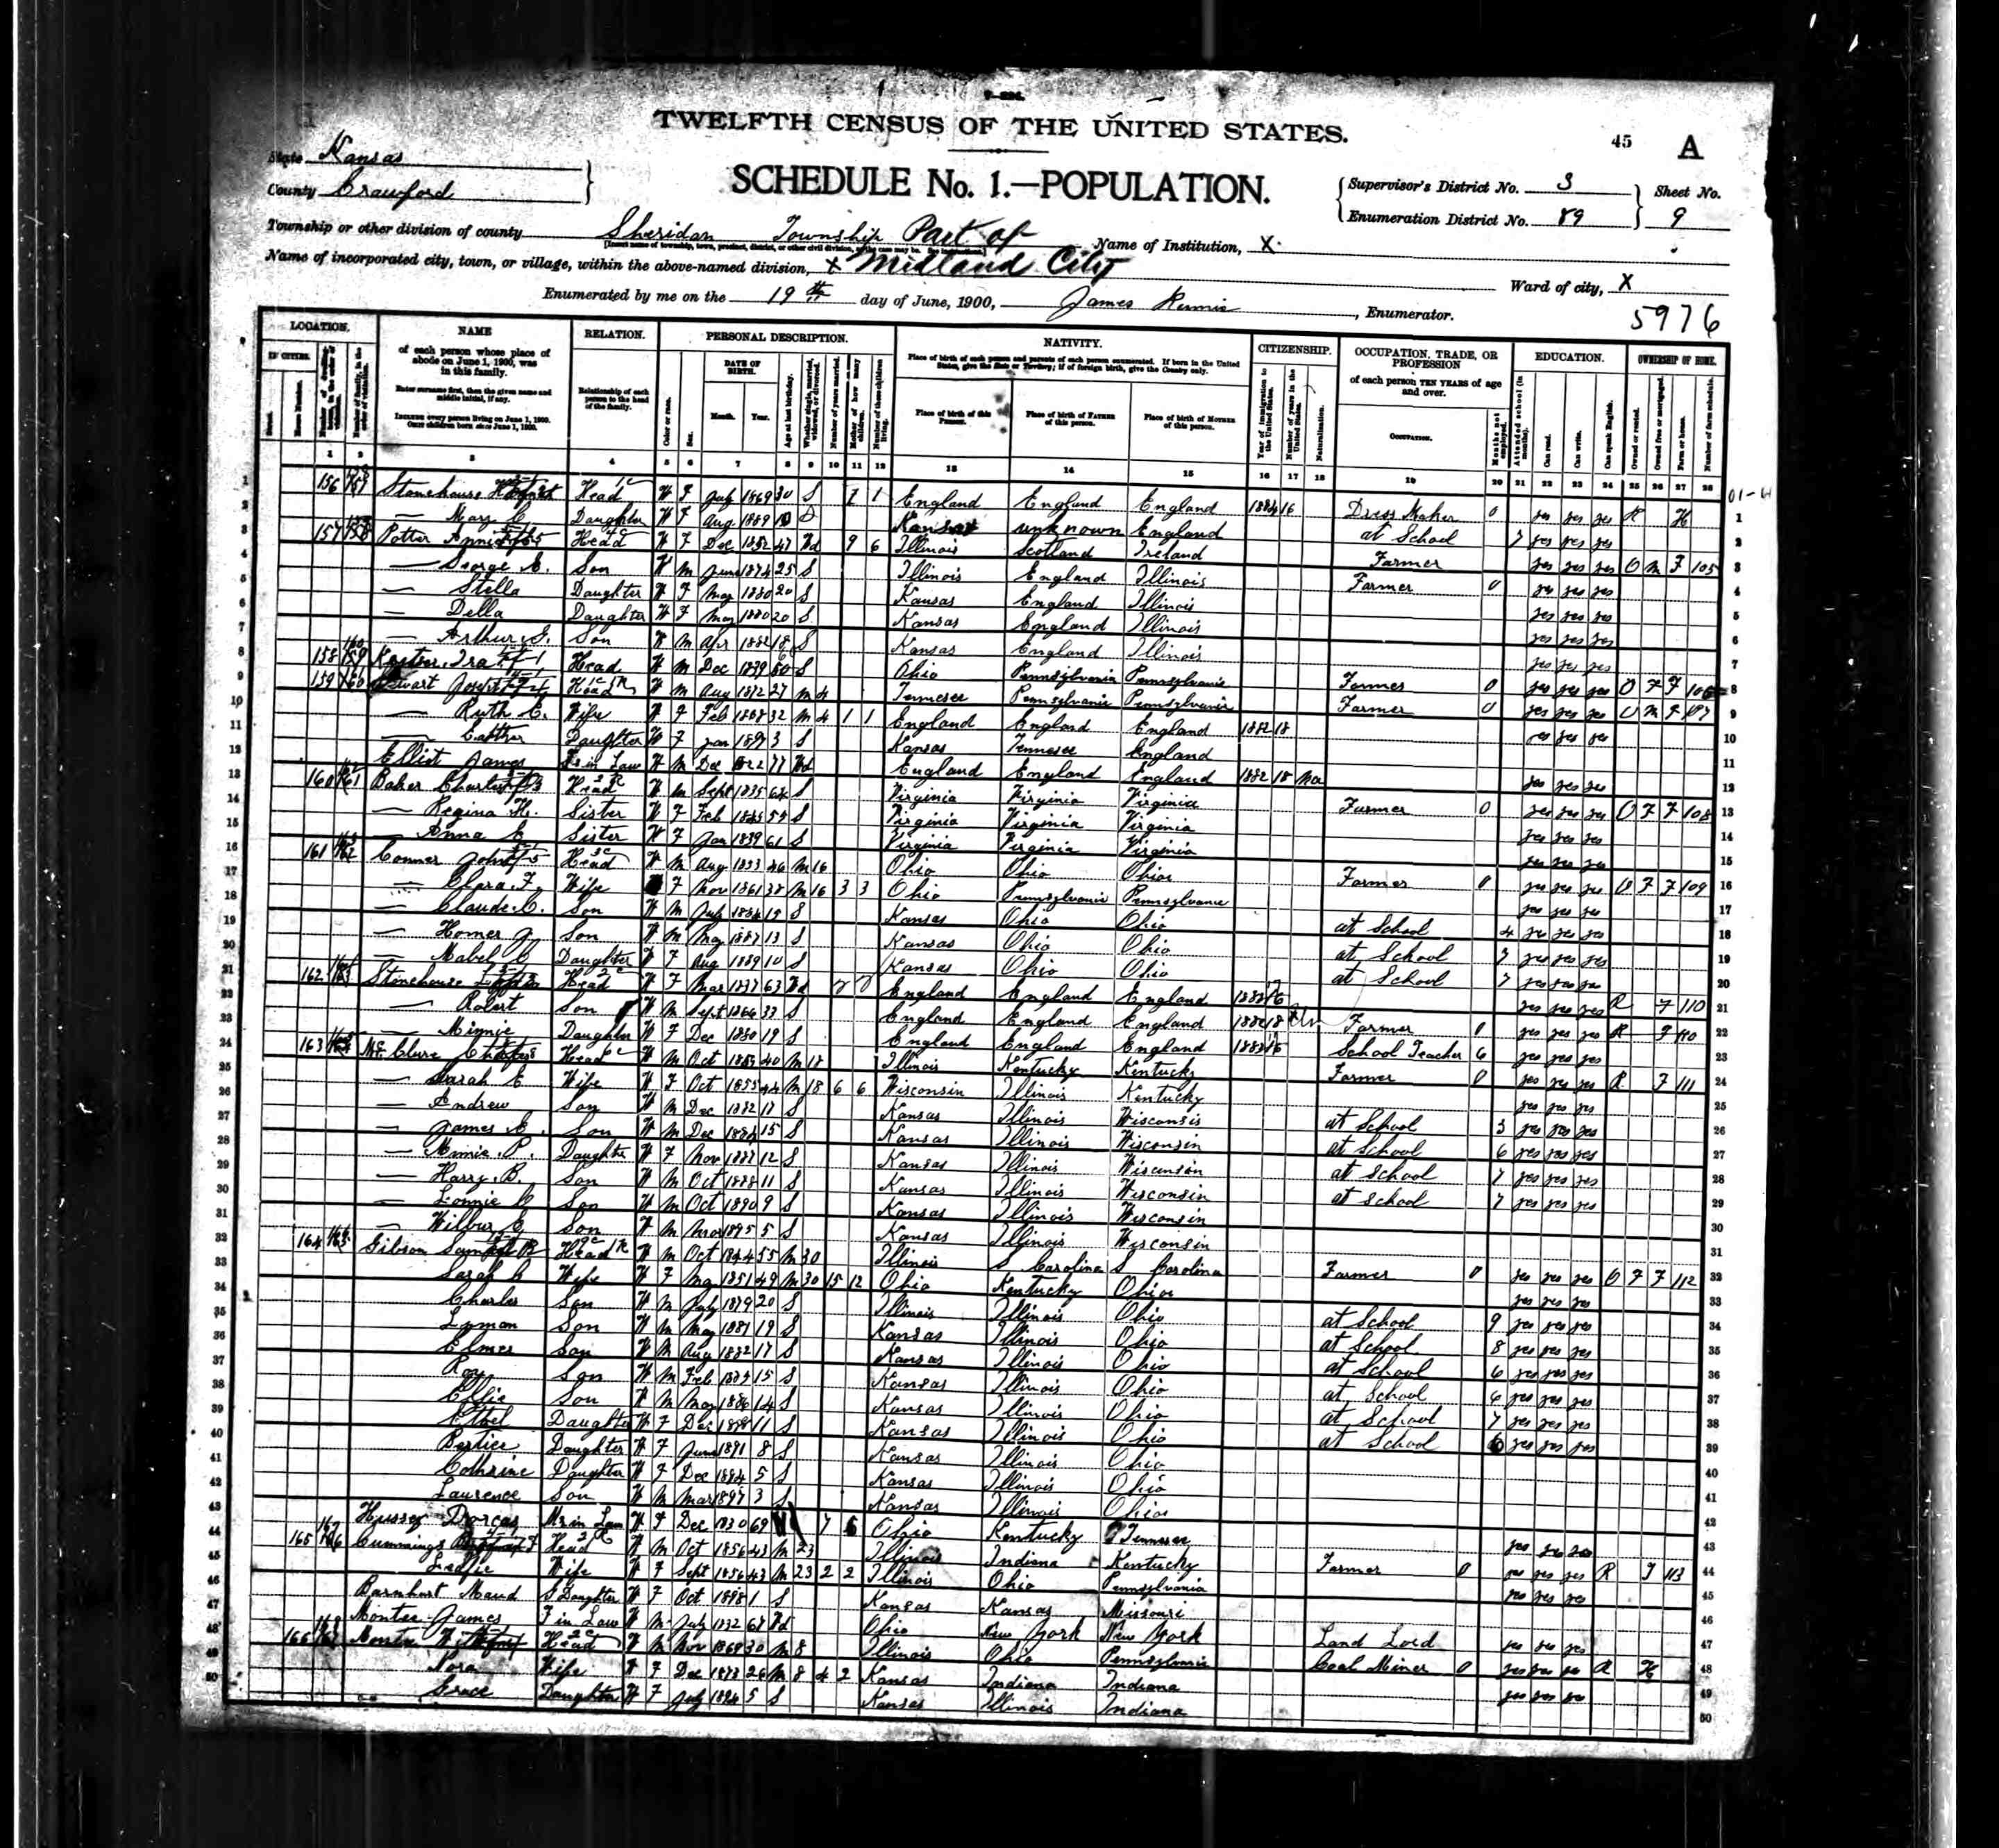 TWELFTH CENSUS OF THE UNITED STATES.
45 A
State Kansas
County Crawford
SCHEDULE No. 1.—POPULATION.
Supervisor's District No. 3 Sheet No.
Enumeration District No. 89 9
Township or other division of county Sheridan Township Part of Name of Institution, X
Name of incorporated city, town, or village, within the above-named division, X Midland City Ward of city, X
Enumerated by me on the 19th day of June, 1900, James , Enumerator.
5976
LOCATION. NAME RELATION. PERSONAL DESCRIPTION. NATIVITY. CITIZENSHIP. OCCUPATION, TRADE, OR PROFESSION EDUCATION. OWNERSHIP OF HOME.
IN CITIES. of each person whose place of abode on June 1, 1900, was in this family. Relationship of each person to the head of the family. DATE OF BIRTH. Place of birth of each person and parents of each person enumerated. If born in the United States, give the State or Territory; if of foreign birth, give the Country only. of each person TEN YEARS of age and over.
Enter surname first, then the given name and middle initial, if any.
INCLUDE every person living on June 1, 1900. OMIT children born since June 1, 1900.
Month. Year. Place of birth of this PERSON. Place of birth of FATHER of this person. Place of birth of MOTHER of this person. OCCUPATION.
1 2 3 4 5 6 7 8 9 10 11 12 13 14 15 16 17 18 19 20 21 22 23 24 25 26 27 28
156 Stonehouse Head W F July 1869 30 S 1 1 England England England 1884 16 Dress Maker 0 yes yes yes R H
— Mary E Daughter W F Aug 1889 10 S Kansas unknown England at School 7 yes yes yes
157 Potter Annie Head W F Dec 1852 47 Wd 9 6 Illinois Scotland Ireland Farmer yes yes yes O M F 105
— George Son W M June 1874 25 S Illinois England Illinois Farmer 0 yes yes yes
— Stella Daughter W F May 1880 20 S Kansas England Illinois yes yes yes
— Della Daughter W F May 1880 20 S Kansas England Illinois yes yes yes
— Arthur S. Son W M Apr 1882 18 S Kansas England Illinois yes yes yes
158 Ira Head W M Dec 1839 60 S Ohio Pennsylvania Pennsylvania Farmer 0 yes yes yes O F F 106
159 Joseph Head W M Aug 1872 27 M 4 Tennesee Pennsylvania Pennsylvania Farmer 0 yes yes yes O M F 107
— Ruth E. Wife W F Feb 1868 32 M 4 1 1 England England England 1882 18 yes yes yes
— Esther Daughter W F Jan 1897 3 S Kansas Tennesee England
Elliot James F in Law W M Dec 1822 77 Wd England England England 1882 18 Na yes yes yes
160 Baker Charles Head W M Sept 1835 64 S Virginia Virginia Virginia Farmer 0 yes yes yes O F F 108
— Regina H. Sister W F Feb 1845 55 S Virginia Virginia Virginia yes yes yes
— Anna E Sister W F Jan 1839 61 S Virginia Virginia Virginia yes yes yes
161 Conner John Head W M Aug 1853 46 M 16 Ohio Ohio Ohio Farmer 0 yes yes yes O F F 109
— Clara F. Wife F Nov 1861 38 M 16 3 3 Ohio Pennsylvania Pennsylvania yes yes yes
— Claude C. Son W M July 1884 15 S Kansas Ohio Ohio at School 4 yes yes yes
— Homer J Son W M May 1887 13 S Kansas Ohio Ohio at School 7 yes yes yes
— Mabel Daughter W F Aug 1889 10 S Kansas Ohio Ohio at School 7 yes yes yes
162 Stonehouse Head W F Mar 1837 63 Wd England England England yes yes yes R F 110
— Robert Son W M Sept 1866 33 S England England England 1882 18 Farmer 0 yes yes yes R F 110
— Minnie Daughter W F Dec 1880 19 S England England England School Teacher 6 yes yes yes
163 McClure Charles Head W M Oct 1859 40 M 18 Illinois Kentucky Kentucky Farmer 0 yes yes yes R F 111
— Sarah E Wife W F Oct 1855 44 M 18 6 6 Wisconsin Illinois Kentucky yes yes yes
— Andrew Son W M Dec 1882 17 S Kansas Illinois Wisconsin at School 3 yes yes yes
— James E. Son W M Dec 1884 15 S Kansas Illinois Wisconsin at School 6 yes yes yes
— Minnie P. Daughter W F Nov 1887 12 S Kansas Illinois Wisconsin at School 7 yes yes yes
— Harry B. Son W M Oct 1888 11 S Kansas Illinois Wisconsin at School 7 yes yes yes
— Lonnie Son W M Oct 1890 9 S Kansas Illinois Wisconsin
— Wilbur E Son W M 1895 5 S Kansas Illinois Wisconsin
164 Gibson Head W M Oct 1844 55 M 30 Illinois S Carolina S Carolina Farmer 0 yes yes yes O F F 112
Sarah Wife W F May 1851 49 M 30 15 12 Ohio Kentucky Ohio yes yes yes
Charles Son W M July 1879 20 S Illinois Illinois Ohio at School 9 yes yes yes
Lyman Son W M May 1881 19 S Kansas Illinois Ohio at School 8 yes yes yes
Elmer Son W M Aug 1882 17 S Kansas Illinois Ohio at School 6 yes yes yes
Roy Son W M Feb 1885 15 S Kansas Illinois Ohio at School 6 yes yes yes
Ellie Son W M May 1886 14 S Kansas Illinois Ohio at School 7 yes yes yes
Ethel Daughter W F Dec 1888 11 S Kansas Illinois Ohio at School 6 yes yes yes
Bertice Daughter W F June 1891 8 S Kansas Illinois Ohio
Cothrine Daughter W F Dec 1894 5 S Kansas Illinois Ohio
Laurence Son W M Mar 1897 3 S Kansas Illinois Ohio
Hussey Dorcas M in Law W F Dec 1830 69 7 6 Ohio Kentucky Tennesee
165 Cummings Head W M Oct 1856 43 M 23 Illinois Indiana Kentucky Farmer 0 yes yes yes R F 113
Wife W F Sept 1856 43 M 23 2 2 Illinois Ohio Pennsylvania yes yes yes
Barnhart Maud G Daughter W F Oct 1898 1 S Kansas Kansas Missouri
Montee James F in Law W M July 1832 67 Wd Ohio New York New York Land Lord yes yes yes
166 Montee Head W M Nov 1869 30 M 8 Illinois Ohio Pennsylvania Coal Miner 0 yes yes yes R H
Nora Wife W F Dec 1873 26 M 8 4 2 Kansas Indiana Indiana yes yes yes
Grace Daughter W F July 1894 5 S Kansas Illinois Indiana